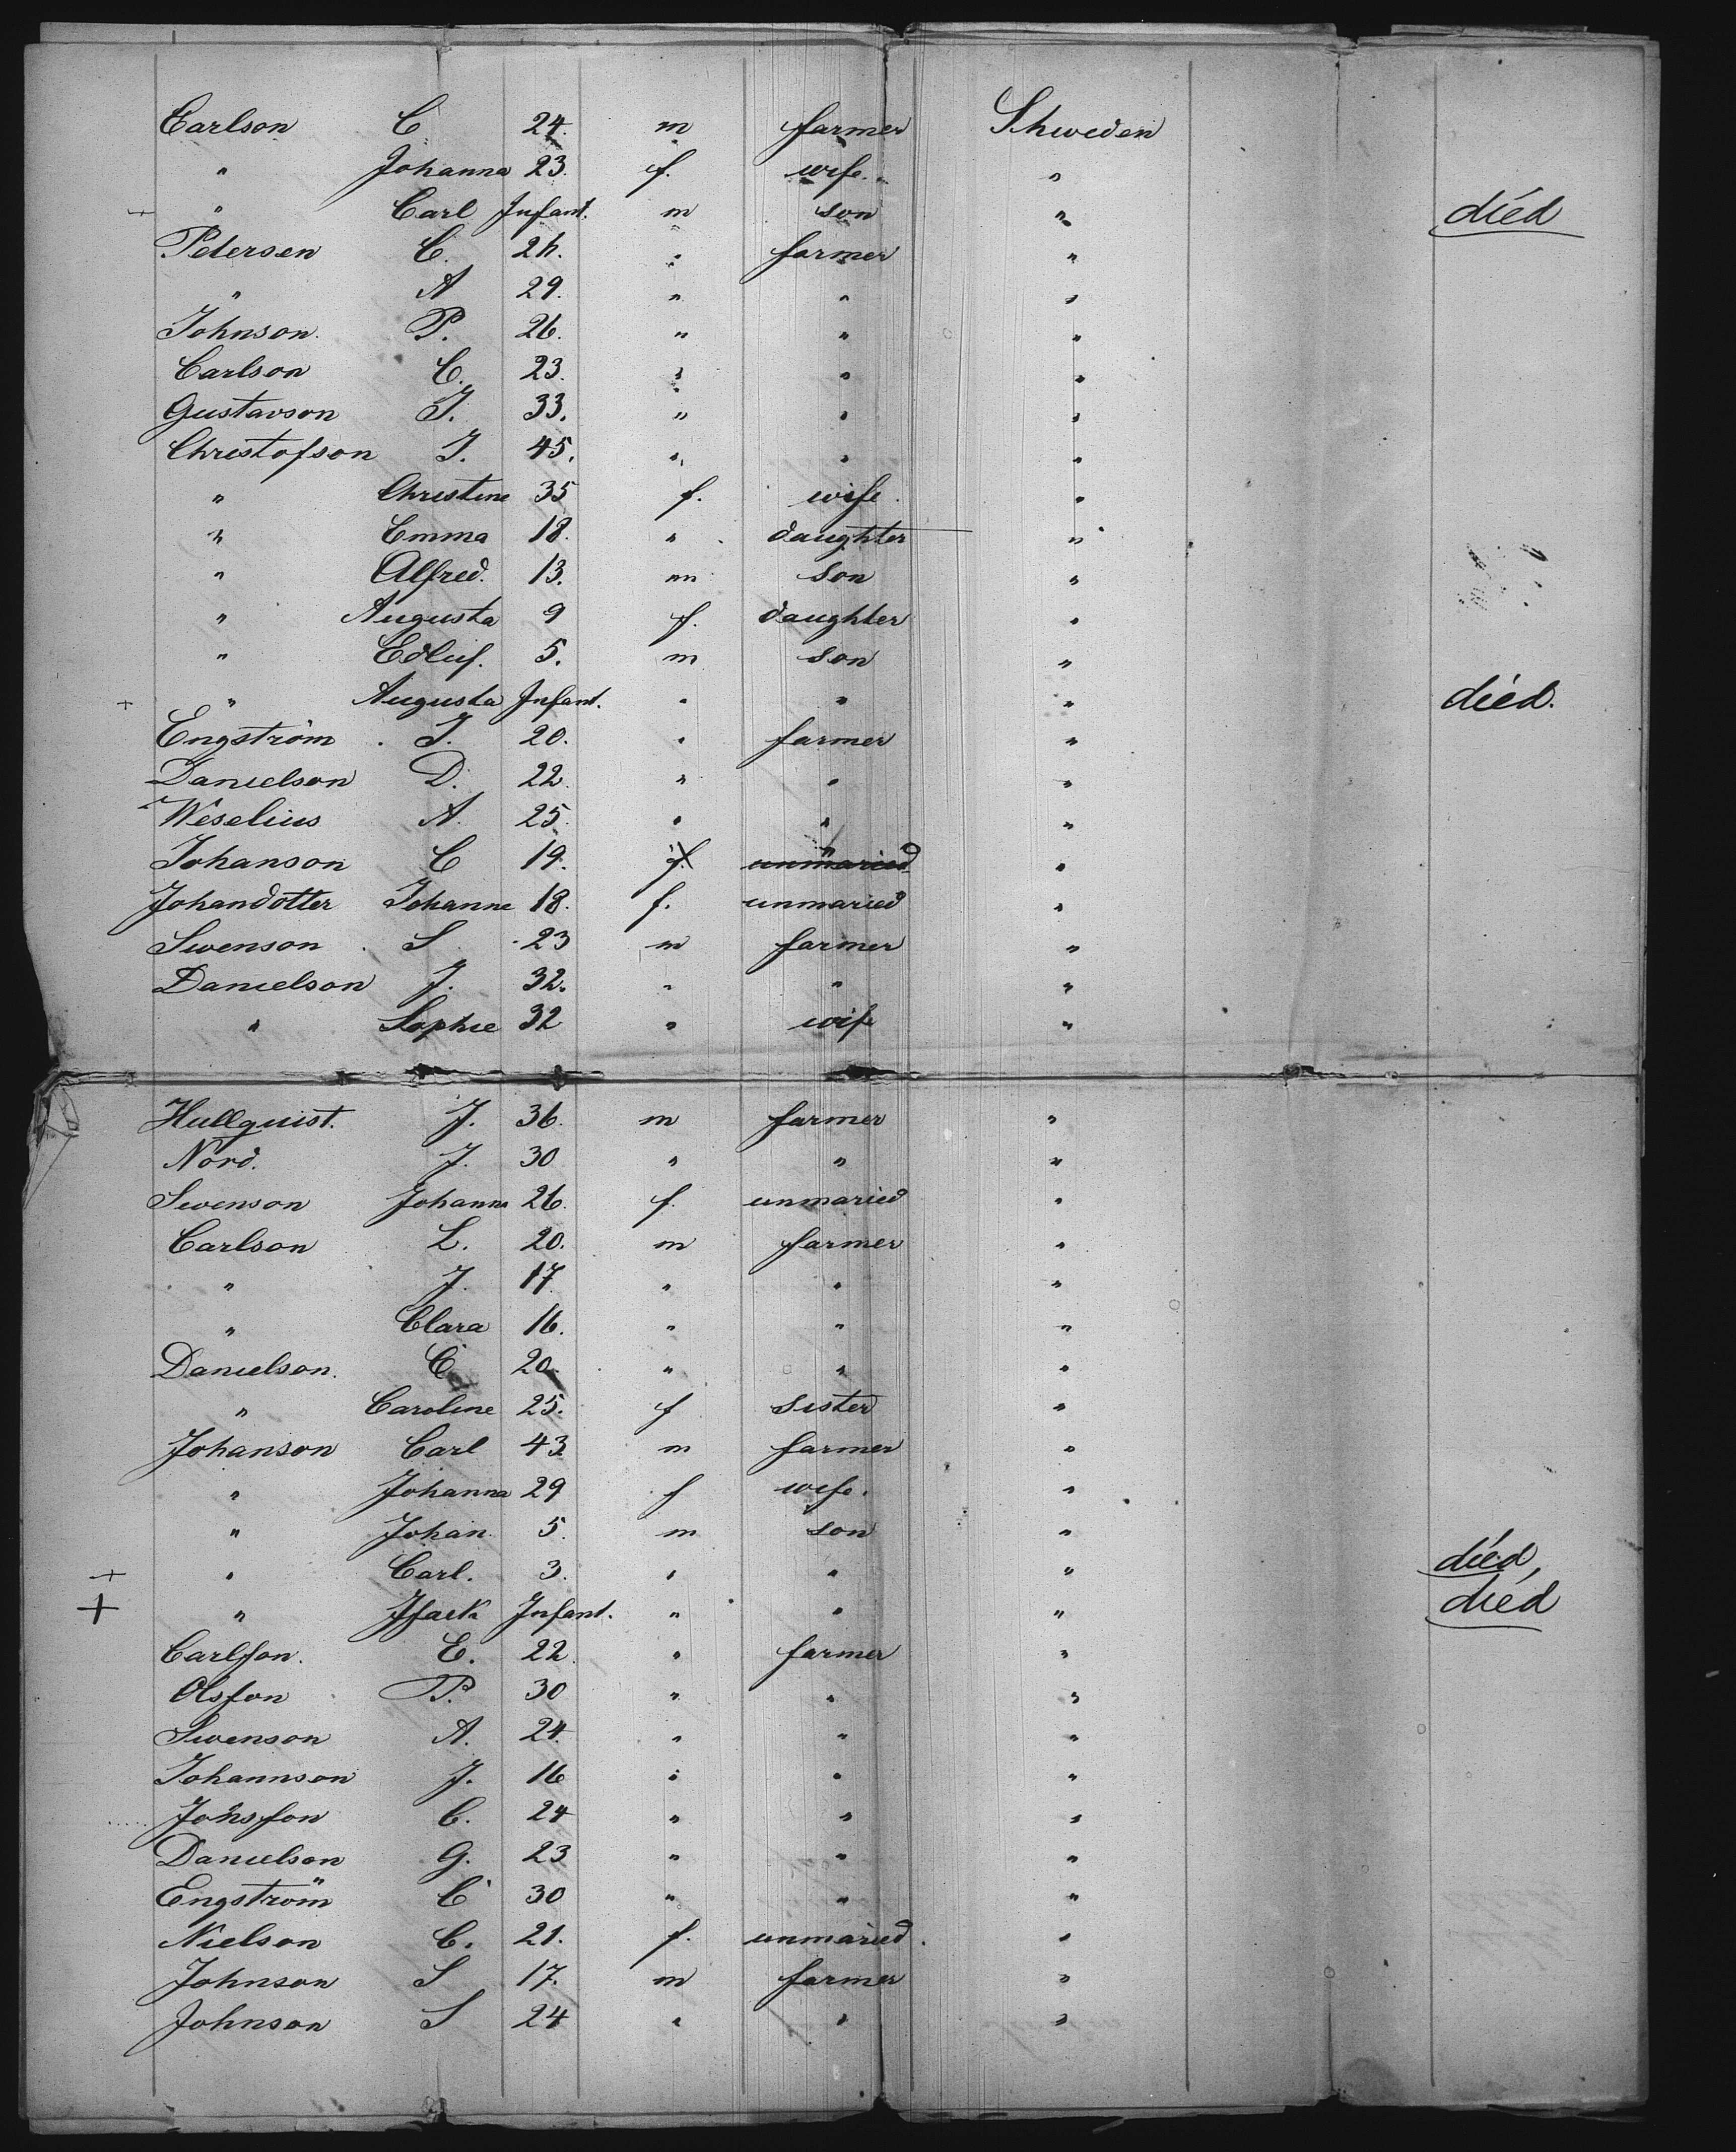 Carlson C 24. m farmer Schweden
" Johanna 23. f. wife. "
+ " Carl Infant. m son " died
Petersen C. 26. " farmer "
" A 29. " " "
Johnson. P. 26. " " "
Carlson C. 23. " " "
Gustavson J. 33. " " "
Christofson J. 45. " " "
" Christine 35 f. wife. "
" Emma 18. " daughter "
" Alfred. 13. m son "
" Augusta 9 f. daughter "
" Edluf. 5. m son "
+ " Augusta Infant. " " " died.
Engström J. 20. " farmer "
Danielson D. 22. " " "
Weselius A. 25. " " "
Johanson C 19. f. " unmaried "
Johandotter Johanne 18. f. unmaried "
Swenson S 23 m farmer "
Danielson J. 32. " " "
" Sophie 32 " wife "
Hullquist. J. 36. m farmer "
Nord. J. 30 " " "
Swenson Johanna 26. f. unmaried "
Carlson L. 20. m farmer "
" J. 17. " " "
" Clara 16. " " "
Danielson. C 20. " " "
" Caroline 25. f sister "
Johanson Carl 43. m farmer "
" Johanna 29 f wife. "
" Johan 5. m son "
+ " Carl. 3. " " " died,
+ " Infant. " " " died
Carlson. E. 22. " farmer "
Olsson P. 30 " " "
Swenson A. 24. " " "
Johannson J. 16 " " "
Jonsson C. 24 " " "
Danielson G. 23 " " "
Engström C 30 " " "
Nielson C. 21. f. unmaried. "
Johnson S 17. m farmer "
Johnson S 24 " " "